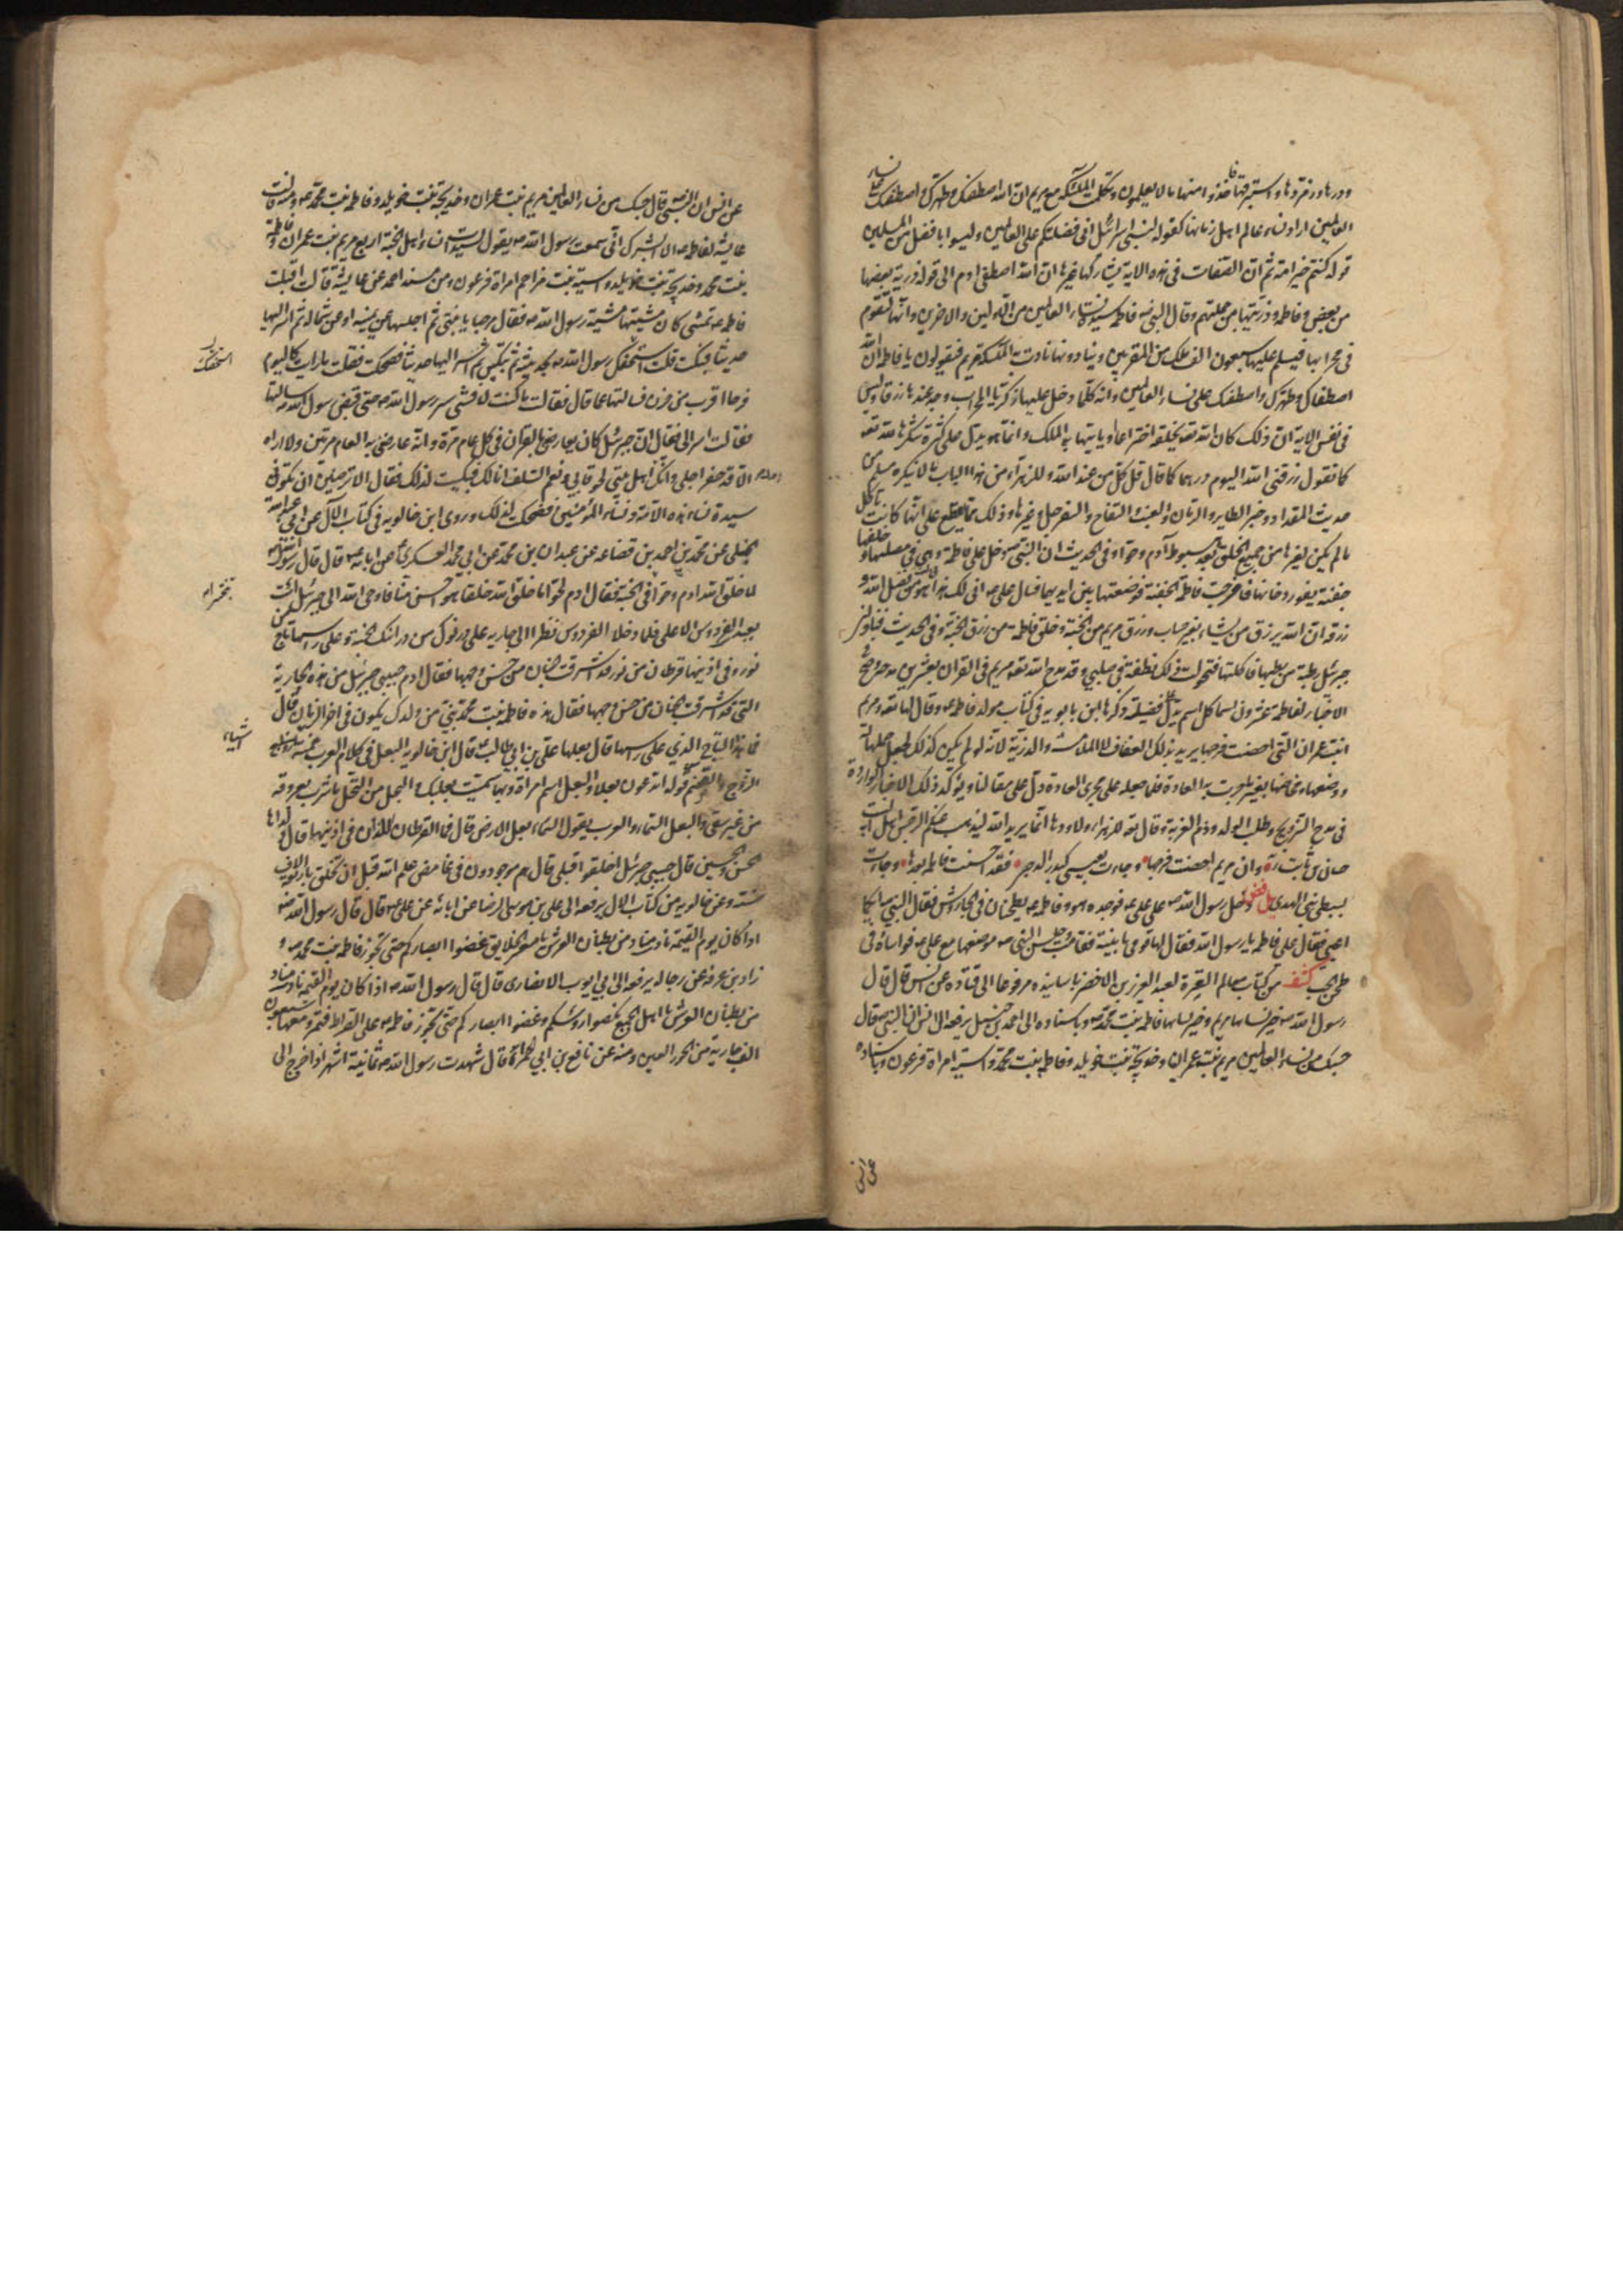 العالمين اراد نساء عالم اهل زمانها كقوله لبنى اسرائيل انى فضلتكم على العالمين وليسوا بافضل من المسلمين
قوله كنتم خير امة ثم ان الصفات فى هذه الاية يشاركها غيرها ان الله اصطفى ادم الى قوله ذرية بعضها
من بعض وفاطمة وذريتها من جملتهم وقال النبى فاطمة سيدة نساء العالمين من الاولين والاخرين وانها لتقوم
فى محرابها فيسلم عليها سبعون الف ملك من المقربين وينادونها بما نادت به الملئكة مريم فيقولون يا فاطمة ان الله
اصطفاك وطهرك واصطفك على نساء العالمين وانه كلما دخل عليها زكريا المحراب وجد عندها رزقا وليس
فى نفس الاية ان ذلك كان الله تعه يخلقه اختراعا او ياتيها به الملك وانما هو يدل على كثرة شكرها لله تعه
كما تقول رزقنى الله اليوم درهما كما قال قل كل من عند الله وللزهراء من هذا الباب ما لا ينكره مسلم من
حديث المقداد وخبر الطاير والرمان والعنب والتفاح والسفرجل وغيرها وذلك مما يقطع على انها كانت تاكل
ما لم يكن لغيرها من جميع الخلق بعد هبوط آدم وحوا وفى الحديث ان النبى دخل على فاطمة وهى فى مصلاها وخلفها
جفنة يفور دخانها فاخرجت فاطمة الجفنة فوضعتها بين ايديهما فسال على انى لك هذا قالت هو من فضل الله و
رزقه ان الله يرزق من يشاء بغير حساب ورزق مريم من الجنة وخلق فاطمة من رزق الجنة وفى الحديث فناولنى
جبرئيل رطبة من رطبها فاكلتها فتحولت ذلك نطفة فى صلبى وقد مدح الله تعه مريم فى القران بعشرين مدحة وصح
الاخبار لفاطمة عشرون اسما كل اسم يدل على فضيلة ذكرها ابن بابويه فى كتاب مولد فاطمة وقال لها تعه ومريم
ابنت عمران التى احصنت فرجها يريد بذلك العفاف لا الملامسة والذرية لانه لو لم يكن كذلك لجعل حملها له
ووضعها ومخاضها بغير ما جرت به العادة فلما جعله على مجرى العادة دل على مقالنا ويؤكد ذلك الاخبار الواردة
فى مدح التزويج وطلب الولد وذم العزبة وقال تعه للزهراء واولادها انما يريد الله ليذهب عنكم الرجس اهل البيت
حسان بن ثابت وان مريم احصنت فرجها وجاءت بعيسى كبدر الدجى فقد احصنت فاطمة بعدها وجاءت
بسبطى نبى الهدى دخل رسول الله على على فوجده هو وفاطمة يطحنان فى الجاورش فقال النبى ايكما
اعيى فقال على فاطمة يا رسول الله فقال لها قومى يا بنية فقامت وجلس النبى موضعها مع على فواساه فى
طحن الحب كشف من كتاب معالم العترة لعبد العزيز بن الاخضر باسانيده مرفوعا الى قتادة عن انس قال قال
رسول الله خير نسائها مريم وخير نسائها فاطمة بنت محمد وباسناده الى احمد بن حنبل يرفعه الى انس ان النبى قال
حسبك من نساء العالمين مريم بنت عمران وخديجة بنت خويلد وفاطمة بنت محمد واسية امراة فرعون وباسناده
عن انس
عن انس ان النبى قال حسبك من نساء العالمين مريم بنت عمران وخديجة بنت خويلد وفاطمة بنت محمد ومنه قالت
عايشة لفاطمة الا ابشرك انى سمعت رسول الله يقول لسيدات نساء اهل الجنة اربع مريم بنت عمران وفاطمة
بنت محمد وخديجة بنت خويلد واسية بنت مزاحم امراة فرعون ومن مسند احمد عن عايشة قالت اقبلت
فاطمة تمشى كان مشيتها مشية رسول الله فقال مرحبا يا بنتى ثم اجلسها عن يمينه او عن شماله ثم اسر اليها
حديثا فبكت قلت استخصك رسول الله بحديثه ثم تبكين ثم اسر اليها حديثا فضحكت فقلت ما رايت كاليوم
فرحا اقرب من حزن فسالتها عما قال فقالت ما كنت لافشى سر رسول الله حتى قبض رسول الله سالتها
فقالت اسر الى فقال ان جبرئيل كان يعارضنى بالقران فى كل عام مرة وانه عارضنى به العام مرتين ولا اراه
الا قد حضر اجلى وانك اول اهل بيتى لحوقا بى ونعم السلف انا لك فبكيت لذلك فقال الا ترضين ان تكونى
سيدة نساء هذه الامة ونساء المؤمنين فضحكت لذلك وروى ابن خالويه فى كتاب الآل عن ابى عبدالله
الحنبلى عن محمد بن احمد بن قضاعة عن عبدان بن محمد عن ابى محمد العسكرى عن ابائه قال قال رسول الله
لما خلق الله ادم وحوا فى الجنة فقال ادم لحوا ما خلق الله خلقا هو احسن منا فاوحى الله الى جبرئيل ائت
بعبدى الفردوس الاعلى فلما دخلا الفردوس نظرا الى جارية على درنوك من درانيك الجنة وعلى راسها تاج
نور وفى اذنيها قرطان من نور قد اشرقت الجنان من حسن وجهها فقال ادم حبيبى جبرئيل من هذه الجارية
التى قد اشرقت الجنان من حسن وجهها فقال هذه فاطمة بنت محمد نبى من ولدك يكون فى اخر الزمان قال
فما هذا التاج الذى على راسها قال بعلها على بن ابى طالب قال ابن خالويه البعل فى كلام العرب خمسة اشياء
الزوج والصنم قوله اتدعون بعلا والبعل اسم امراة وبها سميت بعلبك والبعل من النخل ما شرب بعروقه
من غير سقى والبعل السماء والعرب يقول السماء بعل الارض قال فما القرطان اللذان فى اذنيها قال ولداها
الحسن والحسين قال حبيبى جبرئيل اخلقوا قبلى قال هم موجودون فى غامض علم الله قبل ان تخلق باربعة الاف
سنة وعن خالويه من كتاب الال يرفعه الى على بن موسى الرضا عن ابائه عن على قال قال رسول الله
اذا كان يوم القيمة نادى مناد من بطنان العرش يا معشر الخلايق غضوا ابصاركم حتى تجوز فاطمة بنت محمد و
زاد بن عرفة عن رجاله يرفعه الى ابى ايوب الانصارى قال قال رسول الله اذا كان يوم القيمة نادى مناد
من بطنان العرش يا اهل الجمع نكسوا رؤسكم وغضوا ابصاركم حتى تجوز فاطمة على الصراط فتمر ومعها سبعون
الف جارية من الحور العين ومنه عن نافع بن ابى الحمراء قال شهدت رسول الله ثمانية اشهر اذا خرج الى